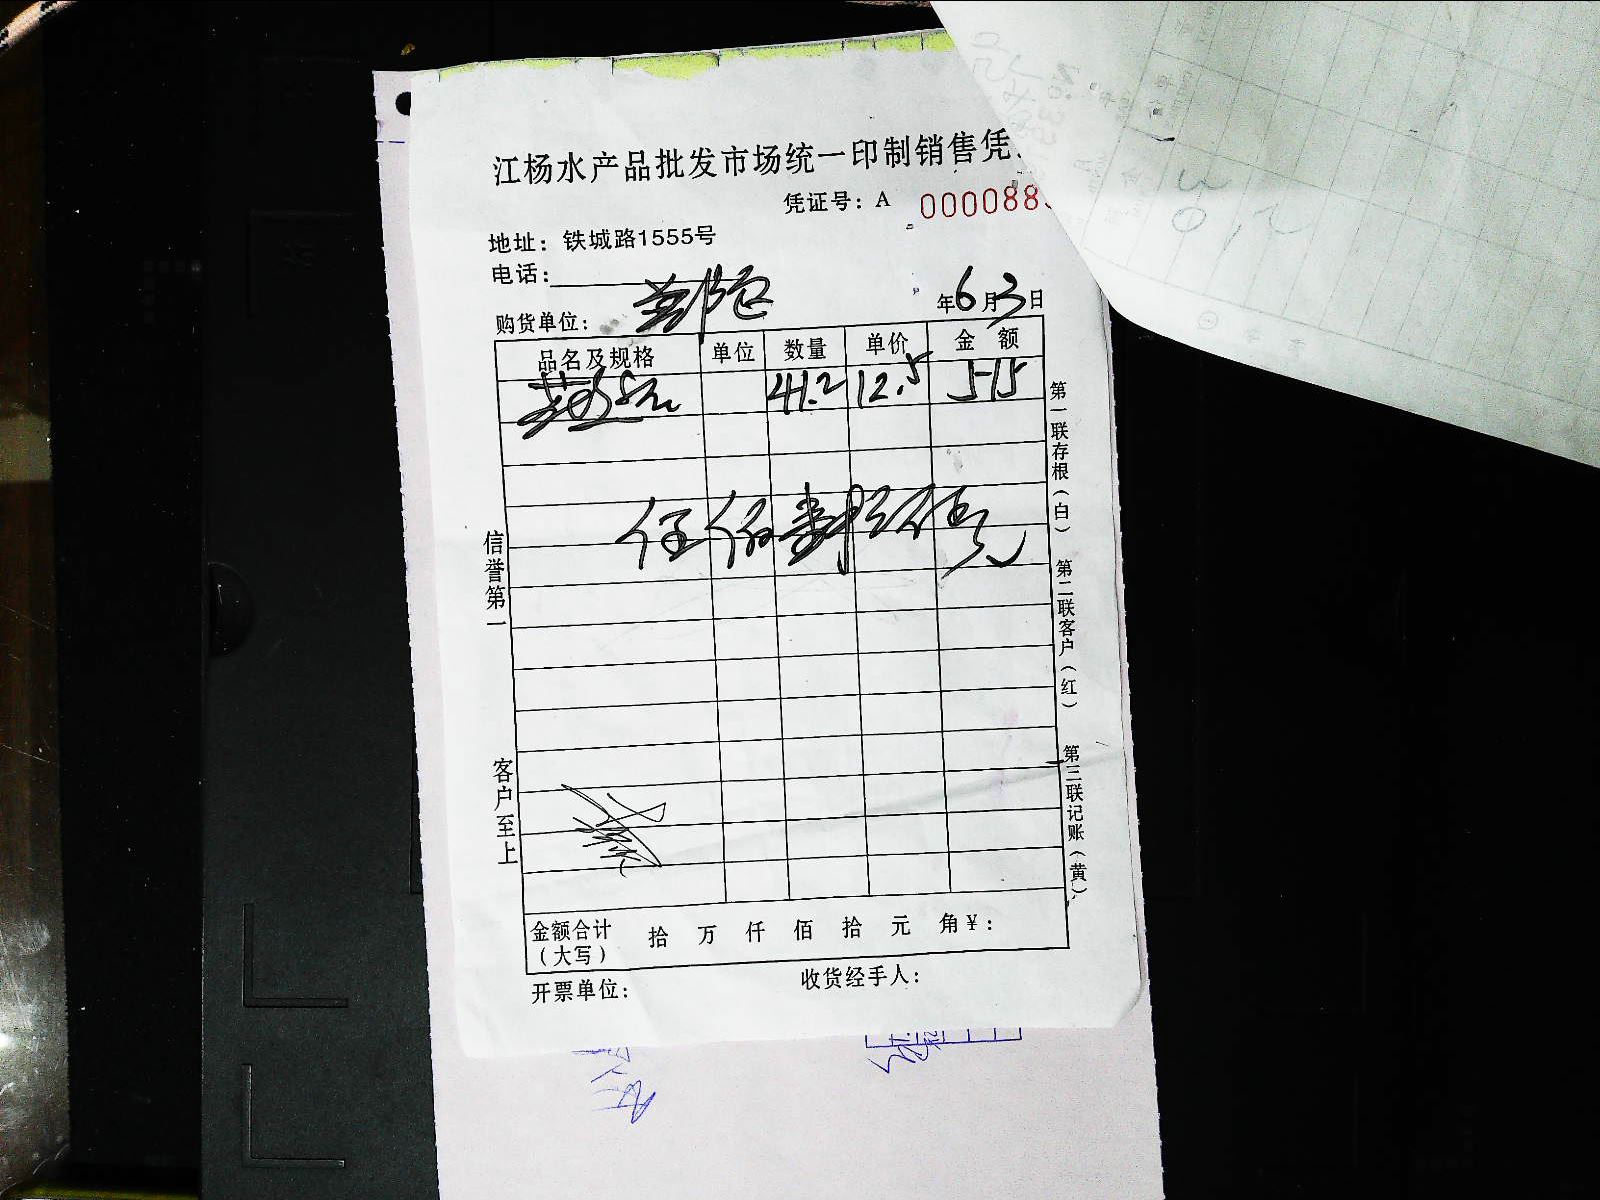 江杨水产品批发市场统一印制销售凭
凭证号：A 000088
地址：铁城路1555号
电话：
购货单位：
年6月3日
品名及规格 单位 数量 单价 金额
41.2 12.5 515
伍佰壹拾伍元
信誉第一
客户至上
第一联存根（白）
第二联客户（红）
第三联记账（黄）
金额合计（大写） 拾 万 仟 佰 拾 元 角¥：
开票单位：
收货经手人：